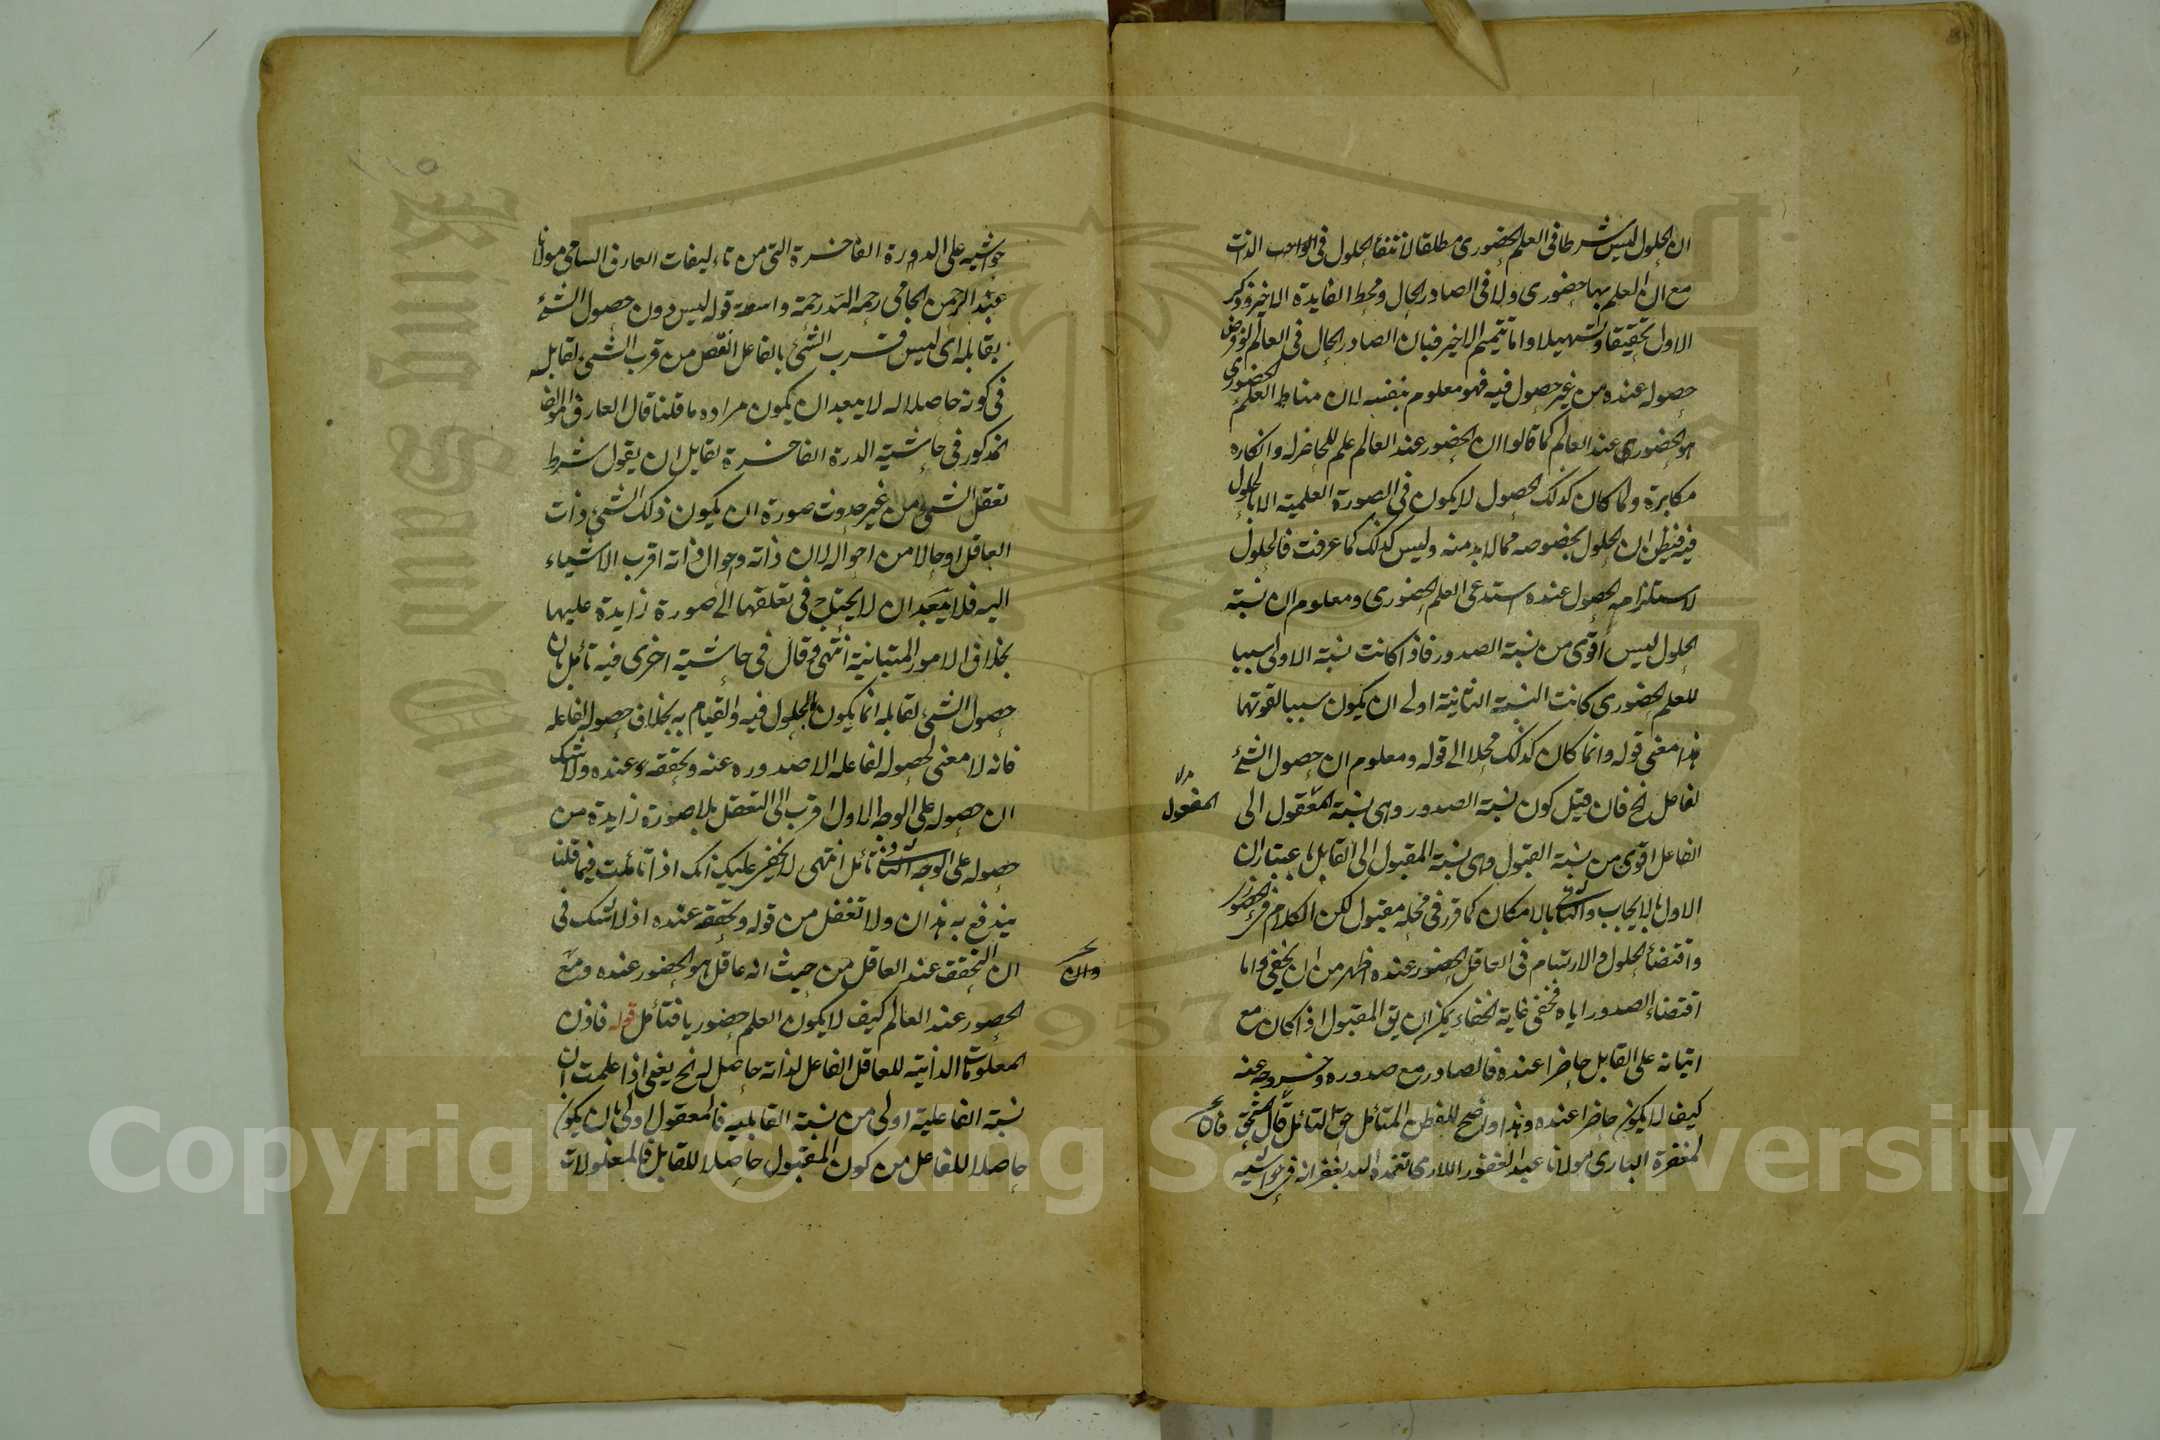 ان الحلول ليس شرطا في العلم الحضوري مطلقا لانتفاء الحلول في الواجب الذات
مع ان العلم بها حضوري ولا في الصادر الحال ومحط الفايدة الاخير وذكر
الاول تحقيقا وتسهيلا واما تتميم الاخير فبان الصادر الحال في العالم لو فرض
حصوله عنده من غير حصول فيه فهو معلوم بنفسه لان مناط العلم الحضوري
هو الحضوري عند العالم كما قالوا ان الحضور عند العالم علم للحاضر له وانكاره
مكابرة ولما كان كذلك الحصول لا يكون في الصورة العلمية الا بالحلول
فيه فيظن ان الحلول بخصوصه مما لا بد منه وليس كذلك كما عرفت فالحلول
لاستلزامه الحصول عنده استدعى العلم الحضوري ومعلوم ان نسبة
الحلول ليس أقوى من نسبة الصدور فاذا كانت نسبة الاولى سببا
للعلم الحضوري كانت النسبة الثانية اولى ان يكون سببا لقوتها
هذا معنى قوله وانما كان كذلك محلا الى قوله ومعلوم ان حصول الشئ
لفاعل الخ فان قيل كون نسبة الصدور وهى نسبة المعقول الى
المفعول
الفاعل اقوى من نسبة القبول وهى نسبة المقبول الى القابل باعتبار ان
الاول بالايجاب والثاني بالامكان كما قرر في محله مقبول لكن الكلام في الحضور
واقتضاء الحلول والارتسام في العاقل الحضور عنده اظهر من ان يخفى واما
اقتضاء الصدور اياه فخفى غاية الخفاء يمكن ان يق المقبول اذا كان مع
اتيانه على القابل حاضرا عنده فالصادر مع صدوره وخروجه عنه
كيف لا يكون حاضرا عنده وهذا واضح للفطن المتأمل حق التأمل قال المحقق
فان
لمغفرة البارى مولانا عبد الغفور اللارى تغمده الله بغفرانه في حواشيه
حواشيه على الدورة الفاخرة التى من تاءليفات العارف السامى مولانا
عبد الرحمن الجامى رحمه الله رحمة واسعة قوله ليس دون حصول الشئ
بقابله اى ليس قرب الشئ بالفاعل انقص من قرب الشئ لقابله
في كونه حاصلا له لا يبعد ان يكون مراده ما قلنا قال العارف مولانا
المذكور في حاشية الدرة الفاخرة لقابل ان يقول شرط
تعقل الشئ من غير حدوث صورة ان يكون ذلك الشئ ذات
العاقل او حالا من احواله لان ذاته واحوال ذاته اقرب الاشياء
اليه فلا يبعد ان لا يحتاج في تعلقها الى صورة زايدة عليها
بخلاف الامور المتباينة أنتهى وقال في حاشية اخرى فيه تأمل لان
حصول الشئ لقابله انما يكون بالحلول فيه والقيام به بخلاف حصوله لفاعله
فانه لا معنى لحصوله لفاعله الا صدوره عنه وتحققه عنده ولا شك
ان حصوله على الوجه الاول اقرب الى التعقل بلا صورة زايدة من
حصوله على الوجه الثاني تأمل انتهى لا يخفى عليك انك اذا تأملت فيما قلنا
يندفع به هذان ولا تغفل من قوله وتحققه عنده اذ لا شك في
ان التحقق عند العاقل من حيث انه عاقل هو الحضور عنده ومع
وان
الحضور عند العالم كيف لا يكون العلم حضوريا فتأمل قوله فاذن
المعلولات الذاتية للعاقل الفاعل لذاته حاصل له الخ يعنى اذا علمت ان
نسبة الفاعلية اولى من نسبة القابلية فالمعقول اولى بان يكون
حاصلا للفاعل من كون المقبول حاصلا للقابل فالمعلولات
Copyright © King Saud University
1957